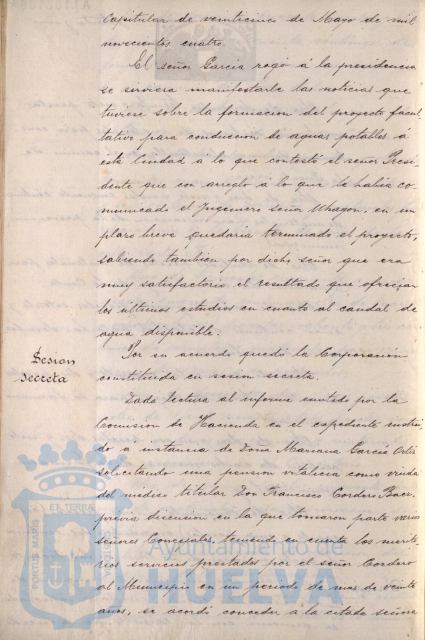 Capitular de veinticinco de Mayo de mil
novecientos cuatro.
El señor García rogó á la presidencia
se sirviera manifestarle las noticias que
tuviese sobre la formación del proyecto facul
tativo para conducción de aguas potables á
esta Ciudad á lo que contestó el señor Presi
dente que con arreglo á lo que le había co
municado el Ingeniero señor Uhagon, en un
plazo breve quedaría terminado el proyecto,
sabiendo también por dicho señor que era
muy satisfactorio el resultado que ofrecían
los últimos estudios en cuanto al caudal de
agua disponible.
Sesion
secreta
Por su acuerdo quedó la Corporación
constituida en sesion secreta.
Dada lectura al informe emitido por la
Comision de Hacienda en el expediente instrui
do á instancia de Dona Mariana García Ortiz
solicitando una pension vitalicia como viuda
del médico titular Don Francisco Cordero
previa discusion en la que tomaron parte varios
señores Concejales, teniendo en cuenta los merito
rios servicios prestados por el señor Cordero
al Municipio en un periodo de mas de veinte
años, se acordó conceder á la citada señora
PORTUS MARIS
ET TERRA
CUSTODIA
Ayuntamiento de
HUELVA